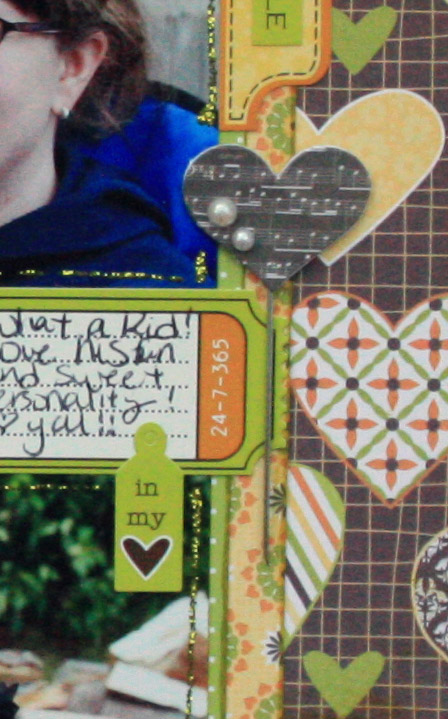 LE
what a kid!
love his fun
and sweet
personality!
♡ yall!!
24-7-365
in
my